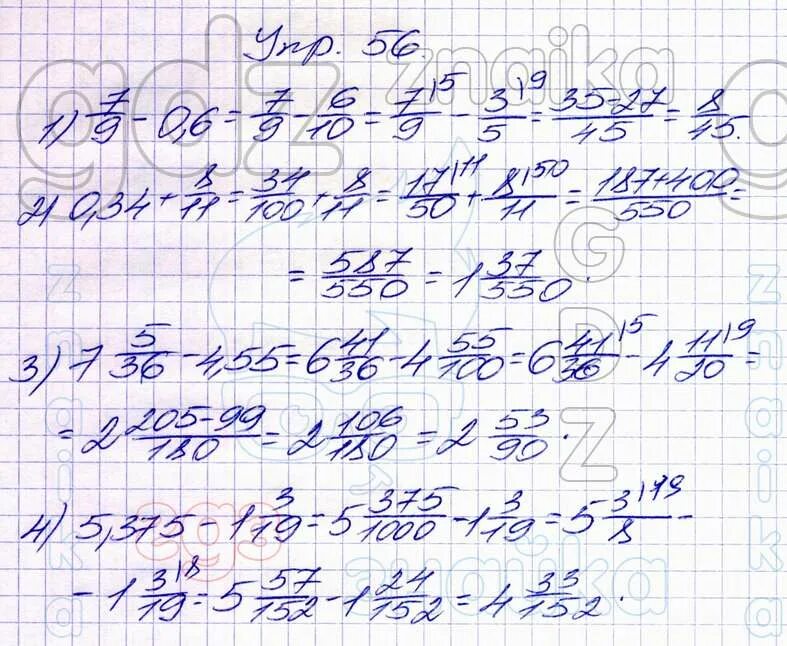 Упр. 56.
1) 7/9 - 0,6 = 7/9 - 6/10 = 7/9 \5 - 3/5 \9 = (35-27)/45 = 8/45.
2) 0,34 + 8/11 = 34/100 + 8/11 = 17/50 \11 + 8/11 \50 = (187+400)/550 =
= 587/550 = 1 37/550.
3) 7 5/36 - 4,55 = 6 41/36 - 4 55/100 = 6 41/36 \5 - 4 11/20 \9 =
= 2 (205-99)/180 = 2 106/180 = 2 53/90.
4) 5,375 - 1 3/19 = 5 375/1000 - 1 3/19 = 5 3/8 \19 -
- 1 3/19 \8 = 5 57/152 - 1 24/152 = 4 33/152.
gdz
znaika
GDZ
znaika
znaika
egs
знайка